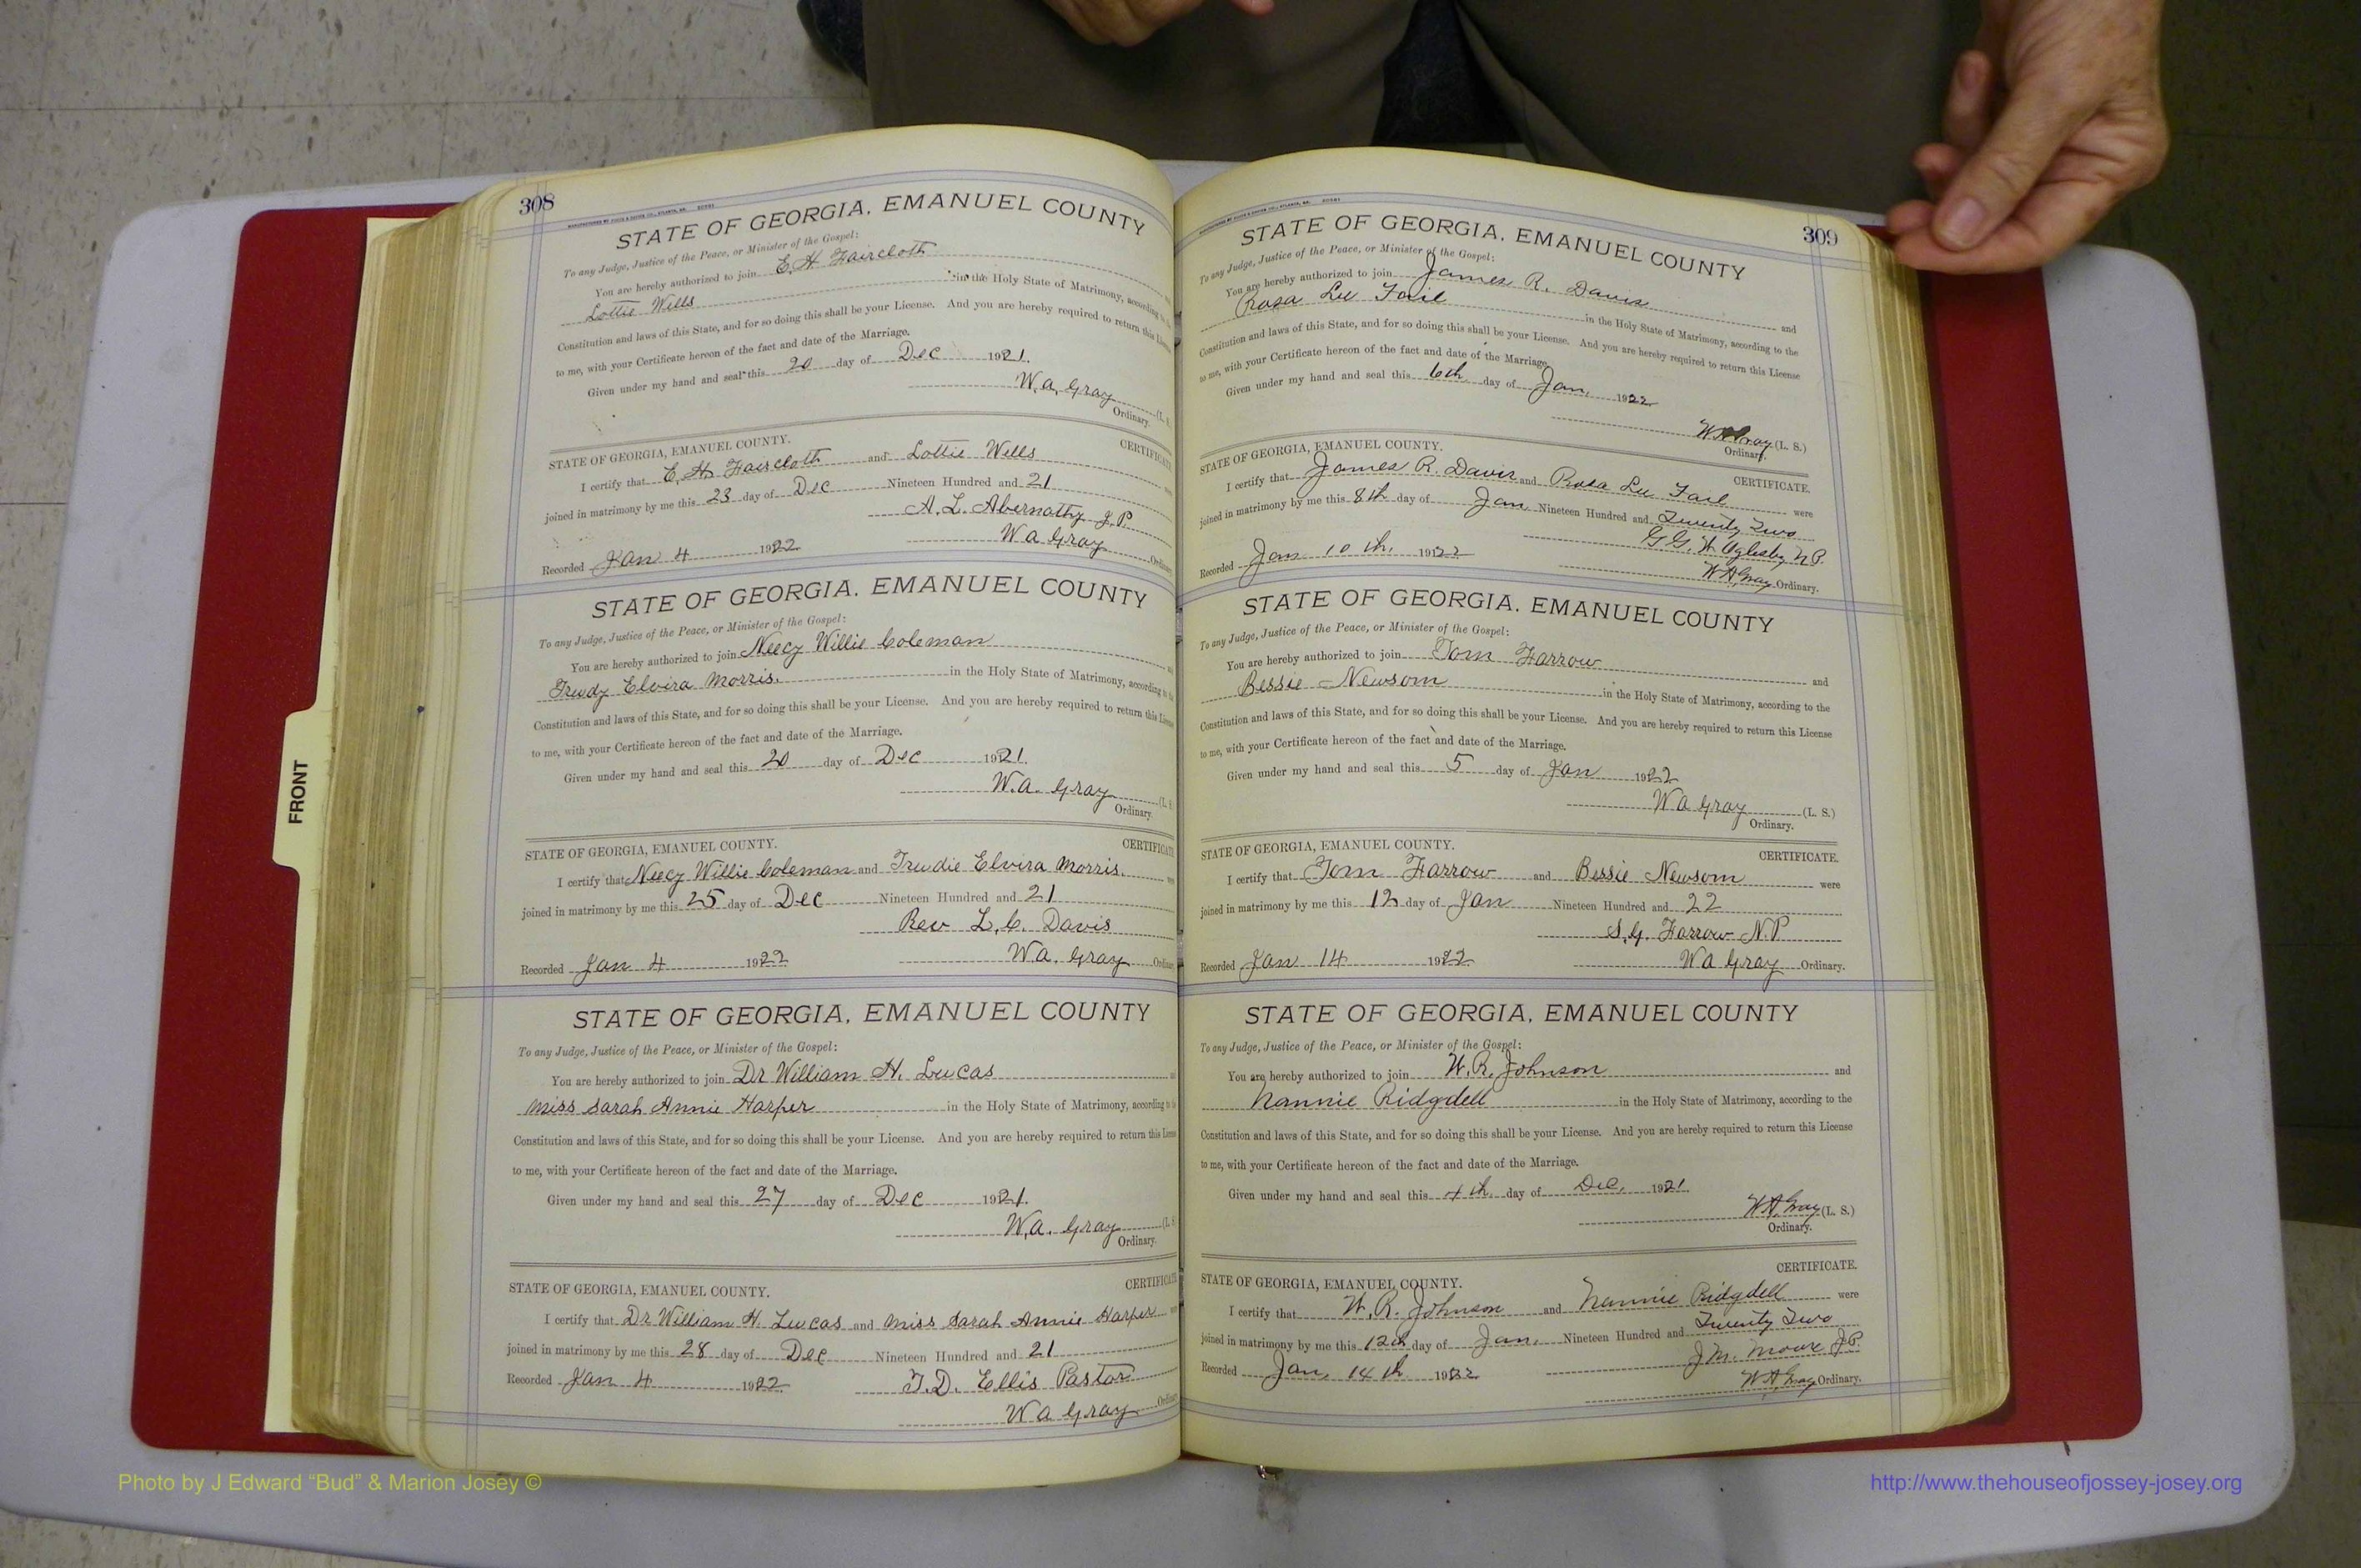 308
STATE OF GEORGIA, EMANUEL COUNTY
To any Judge, Justice of the Peace, or Minister of the Gospel:
You are hereby authorized to join E. H. Faircloth
Lottie Wells in the Holy State of Matrimony, according
Constitution and laws of this State, and for so doing this shall be your License. And you are hereby required to return this
to me, with your Certificate hereon of the fact and date of the Marriage.
Given under my hand and seal this 20 day of Dec 1921.
W. A. Gray (L. S.
Ordinary.
STATE OF GEORGIA, EMANUEL COUNTY. CERTIFICATE
I certify that E. H. Faircloth and Lottie Wells
joined in matrimony by me this 23 day of Dec Nineteen Hundred and 21
A. L. Abernathy J.P.
Recorded Jan 4 1922 W a Gray
STATE OF GEORGIA, EMANUEL COUNTY
To any Judge, Justice of the Peace, or Minister of the Gospel:
You are hereby authorized to join Neecy Willie Coleman
Trudy Elvira Morris. in the Holy State of Matrimony, according to
Constitution and laws of this State, and for so doing this shall be your License. And you are hereby required to return this
to me, with your Certificate hereon of the fact and date of the Marriage.
Given under my hand and seal this 20 day of Dec 1921.
W. a. Gray (L.
Ordinary.
STATE OF GEORGIA, EMANUEL COUNTY. CERTIFICATE
I certify that Neecy Willie Coleman and Trudie Elvira Morris.
joined in matrimony by me this 25 day of Dec Nineteen Hundred and 21
Rev L. C. Davis
Recorded Jan 4 1922 W a. Gray
STATE OF GEORGIA, EMANUEL COUNTY
To any Judge, Justice of the Peace, or Minister of the Gospel:
You are hereby authorized to join Dr William H. Lucas
Miss Sarah Annie Harper in the Holy State of Matrimony, according to
Constitution and laws of this State, and for so doing this shall be your License. And you are hereby required to return this
to me, with your Certificate hereon of the fact and date of the Marriage.
Given under my hand and seal this 27 day of Dec 1921.
W. a. Gray (L. S
Ordinary.
STATE OF GEORGIA, EMANUEL COUNTY. CERTIFICATE
I certify that Dr William H. Lucas and Miss Sarah Annie Harper
joined in matrimony by me this 28 day of Dec Nineteen Hundred and 21
Recorded Jan 4 1922 T. D. Ellis Pastor
W a Gray
309
STATE OF GEORGIA, EMANUEL COUNTY
To any Judge, Justice of the Peace, or Minister of the Gospel:
You are hereby authorized to join James R. Davis and
Rosa Lee Fail in the Holy State of Matrimony, according to the
Constitution and laws of this State, and for so doing this shall be your License. And you are hereby required to return this License
to me, with your Certificate hereon of the fact and date of the Marriage.
Given under my hand and seal this 6th day of Jan, 1922
W A Gray (L. S.)
Ordinary.
STATE OF GEORGIA, EMANUEL COUNTY. CERTIFICATE.
I certify that James R. Davis and Rosa Lee Fail were
joined in matrimony by me this 8th day of Jan Nineteen Hundred and Twenty Two
G. W. Oglesby N.P.
Recorded Jan 10th, 1922 W A Gray Ordinary.
STATE OF GEORGIA, EMANUEL COUNTY
To any Judge, Justice of the Peace, or Minister of the Gospel:
You are hereby authorized to join Tom Farrow and
Bessie Newsom in the Holy State of Matrimony, according to the
Constitution and laws of this State, and for so doing this shall be your License. And you are hereby required to return this License
to me, with your Certificate hereon of the fact and date of the Marriage.
Given under my hand and seal this 5 day of Jan 1922
W a Gray (L. S.)
Ordinary.
STATE OF GEORGIA, EMANUEL COUNTY. CERTIFICATE.
I certify that Tom Farrow and Bessie Newsom were
joined in matrimony by me this 12 day of Jan Nineteen Hundred and 22
S. G. Farrow N.P
Recorded Jan 14 1922 W a Gray Ordinary.
STATE OF GEORGIA, EMANUEL COUNTY
To any Judge, Justice of the Peace, or Minister of the Gospel:
You are hereby authorized to join W. R. Johnson and
Nannie Ridgdell in the Holy State of Matrimony, according to the
Constitution and laws of this State, and for so doing this shall be your License. And you are hereby required to return this License
to me, with your Certificate hereon of the fact and date of the Marriage.
Given under my hand and seal this 4th day of Dec, 1921
W A Gray (L. S.)
Ordinary.
STATE OF GEORGIA, EMANUEL COUNTY. CERTIFICATE.
I certify that W. R. Johnson and Nannie Ridgdell were
joined in matrimony by me this 12th day of Jan, Nineteen Hundred and Twenty Two
Recorded Jan, 14th 1922 J. M. Moore J.P.
W A Gray Ordinary.
FRONT
Photo by J Edward “Bud” & Marion Josey ©
http://www.thehouseofjossey-josey.org